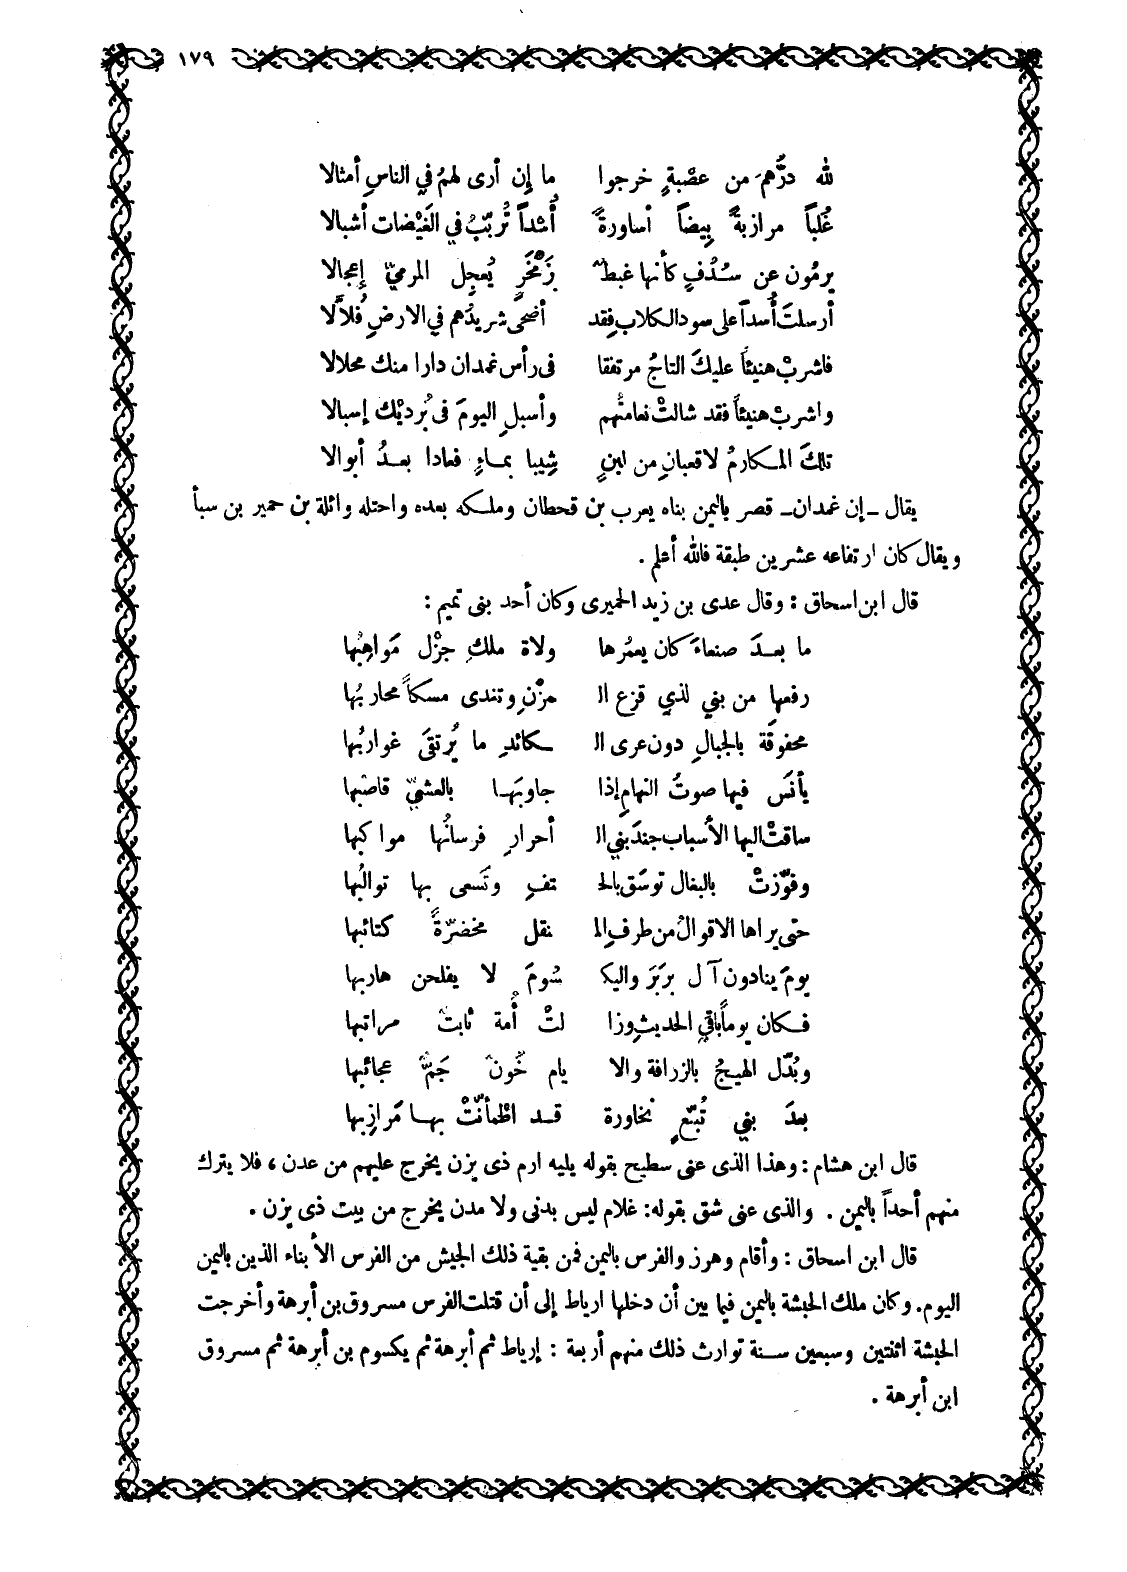 ١٧٩
لله درُّهمَ من عصْبةٍ خرجوا ما إِن أرى لهمُ في الناسِ أمثالا
غُلباً مرازبةً بِيضاً أساورةً أُسْداً تُربّبُ في الغَيْضات أشبالا
يرمُون عن سُدُفٍ كأنها غبطٌ بِزَمْخَرٍ يُعجِل المرميّ إعجالا
أرسلتَ أُسداً على سود الكلاب فقد أضحَى شريدُهم في الارضِ فُلاَّلا
فاشربْ هنيئاً عليكَ التاجُ مرتفقا فى رأس غمدان دارا منك محلالا
واشربْ هنيئاً فقد شالتْ نعامتُهم وأسبلِ اليومَ فى بُرديْك إسبالا
تلكَ المكارمُ لا قعبانِ من لبنٍ شِيبا بماءٍ فعادا بعدُ أبوالا
يقال ـ إن غمدان ـ قصر باليمن بناه يعرب بن قحطان وملكه بعده واحتله واثلة بن حمير بن سبأ
ويقال كان ارتفاعه عشرين طبقة فالله أعلم .
قال ابن اسحاق : وقال عدى بن زيد الحميرى وكان أحد بنى تميم :
ما بعدَ صنعاءَ كان يعمُرها ولاة ملكِ جزْل مَواهِبُها
رفعها من بني لذي قزع ال مزْنِ وتندى مسكاً محاربُها
محفوفَة بالجبالِ دون عرى ال كائدِ ما يُرتقَى غواربُها
يأنَس فيها صوتُ النهامِ إذا جاوبَها بالعشيّ قاصبُها
ساقتْ اليها الأسباب جندَ بني ال أحرارِ فرسانُها مواكبها
وفوّزتْ بالبغال توسَق بالح تفِ وتَسعى بها توالبُها
حتى يراها الاقوالُ من طرفِ الم نقل مخضرّةً كتائبها
يومَ ينادون آل بربَرَ واليك سُومَ لا يفلحن هاربها
فكان يوماً باقي الحديث وزا لتْ أُمة ثابتٌ مراتبها
وبُدّل الهيجُ بالزرافة والا يام خُونٌ جَمٌّ عجائبها
بعدَ بني تُبّعٍ نخاورة قد اطمأنّتْ بها مَرازِبها
قال ابن هشام : وهذا الذى عنى سطيح بقوله يليه ارم ذى يزن يخرج عليهم من عدن ، فلا يترك
منهم أحداً باليمن . والذى عنى شق بقوله : غلام ليس بدنى ولا مدن يخرج من بيت ذى يزن .
قال ابن اسحاق : وأقام وهرز والفرس باليمن فمن بقية ذلك الجيش من الفرس الأبناء الذين باليمن
اليوم . وكان ملك الحبشة باليمن فيما بين أن دخلها ارياط إلى أن قتلت الفرس مسروق بن أبرهة وأخرجت
الحبشة اثنتين وسبعين سنة توارث ذلك منهم أربعة : إرياط ثم أبرهة ثم يكسوم بن أبرهة ثم مسروق
ابن أبرهة .